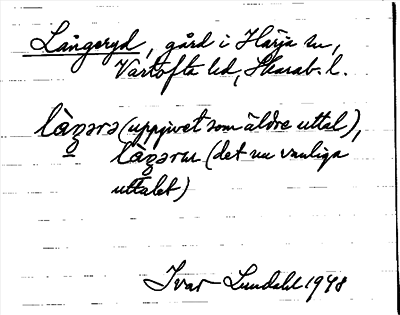 Långeryd, gård i Härja sn,
Vartofta hd, Skarab. l.
(uppgivet som äldre uttal),
(det nu vanliga
uttalet)
Ivar Lundahl 1948